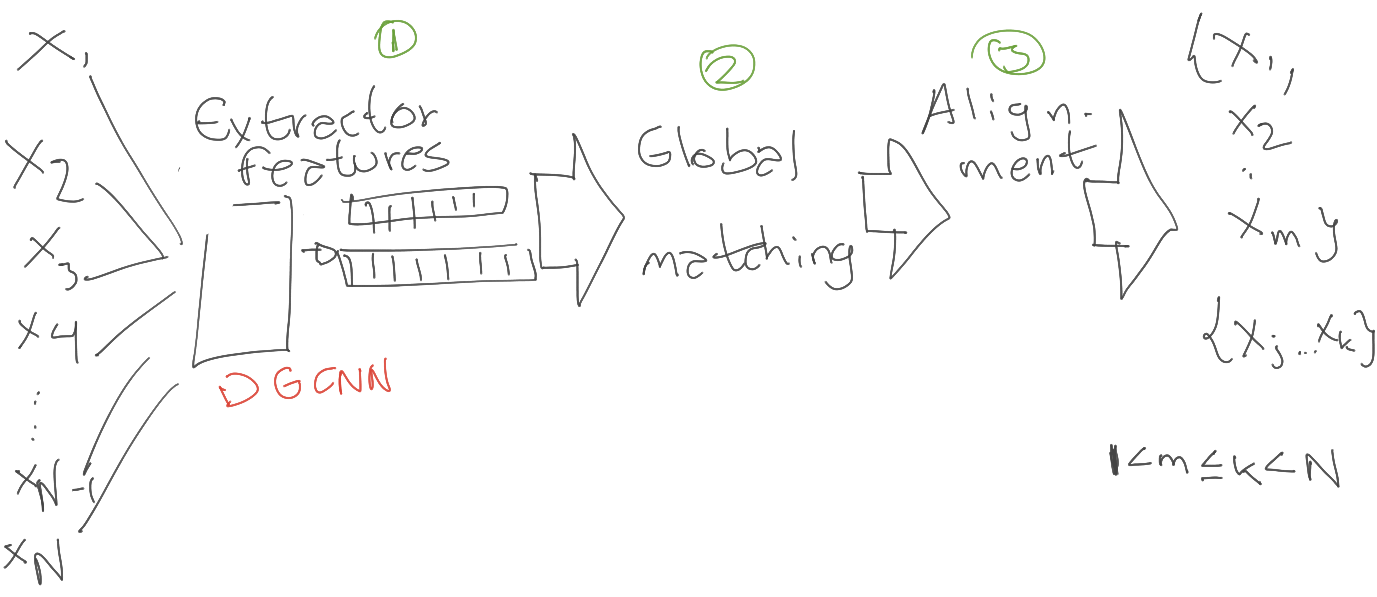 X1
X2
X3
X4
⋮
XN-1
XN
1
Extractor
features
DGCNN
2
Global
matching
3
Align-
ment
{X1,
X2
:
Xm}
{Xj...Xk}
1<m≤k<N